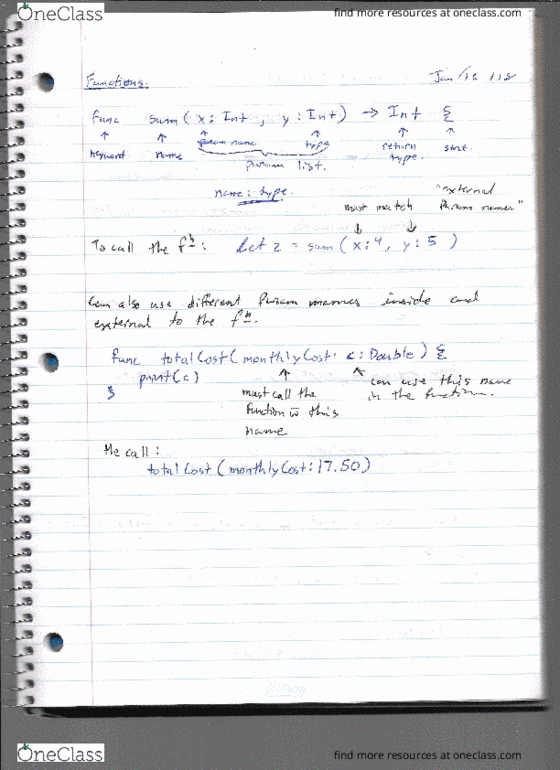 OneClass
find more resources at oneclass.com
Functions.
Jan /16 /18
func sum( x: Int , y: Int) → Int {
keyword name param name type return type. start.
param list.
name: type.
must match "external Param names"
To call the fⁿ: let z = sum( x:4, y:5 )
Can also use different Param names inside and
external to the fⁿ.
func totalCost( monthlyCost c:Double) {
print(c)
}
must call the function w̅ this name
can use this name in the function.
The call:
totalCost( monthlyCost:17.50)
OneClass
find more resources at oneclass.com